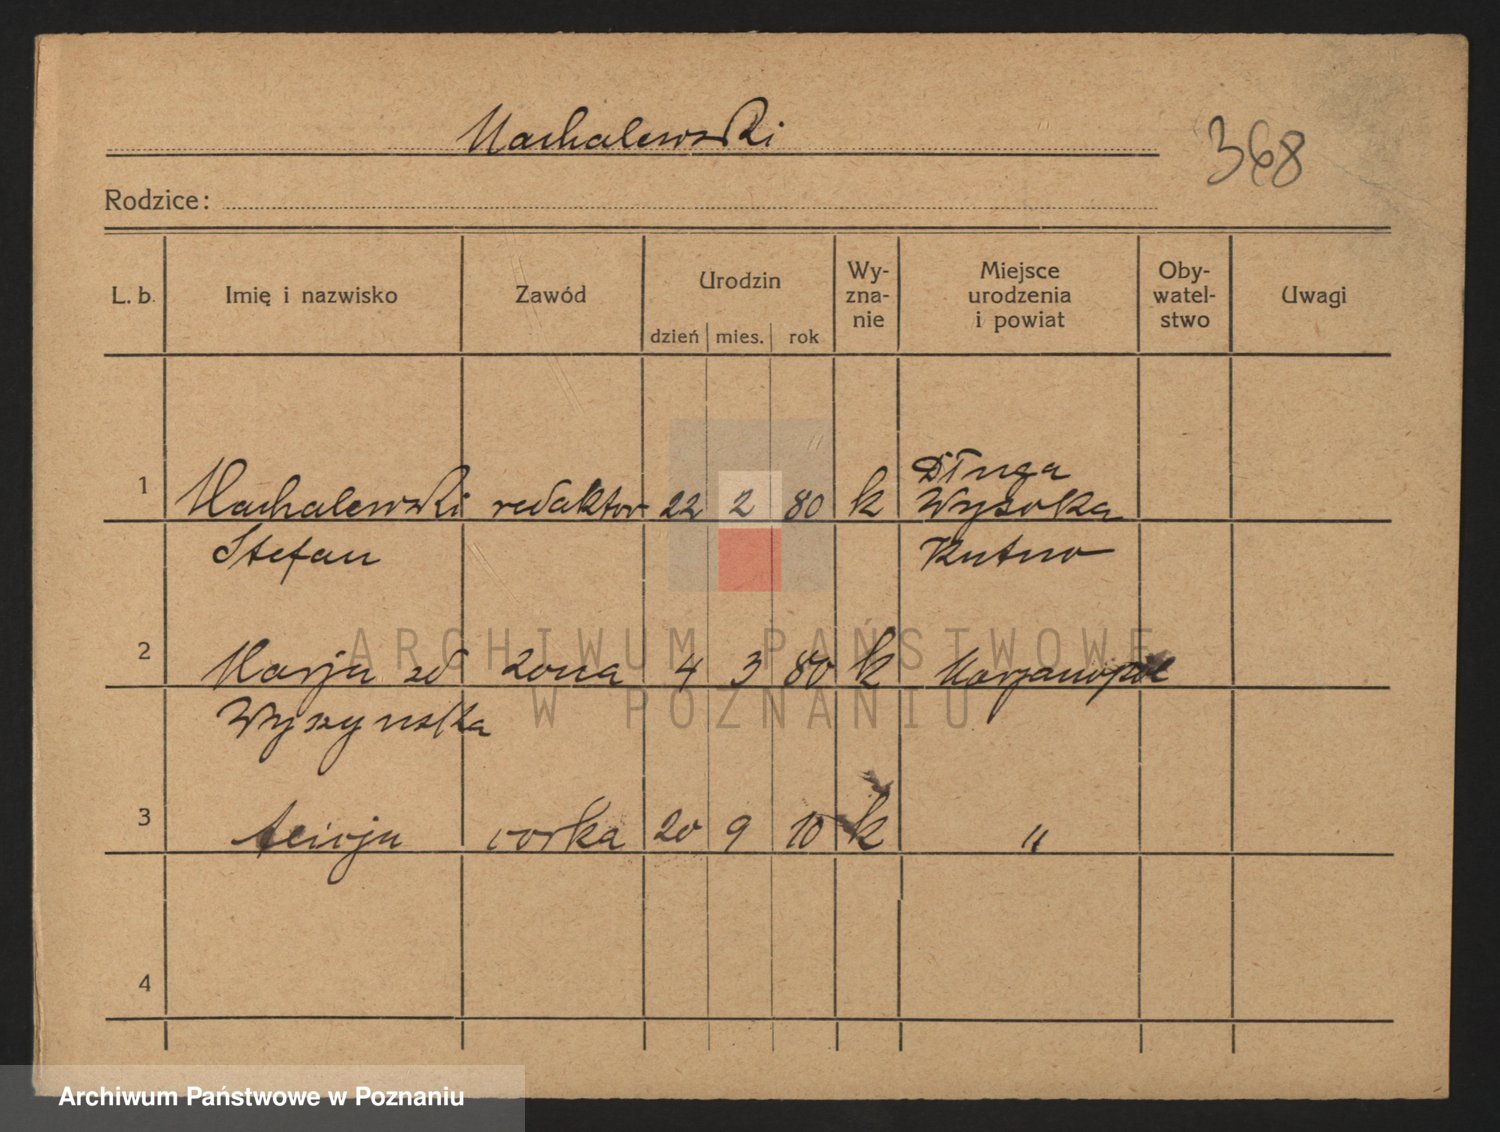 Machalewski
368
Rodzice:
L. b. Imię i nazwisko Zawód Urodzin Wy-zna-nie Miejsce urodzenia i powiat Oby-watel-stwo Uwagi
dzień mies. rok
Długa
1 Machalewski redaktor 22 2 80 k Wysoka
Stefan Kutno
2 Marja zd żona 4 3 80 k
Wyszynska
3 Alicja corka 20 9 10 k "
4
ARCHIWUM PAŃSTWOWE
W POZNANIU
Archiwum Państwowe w Poznaniu